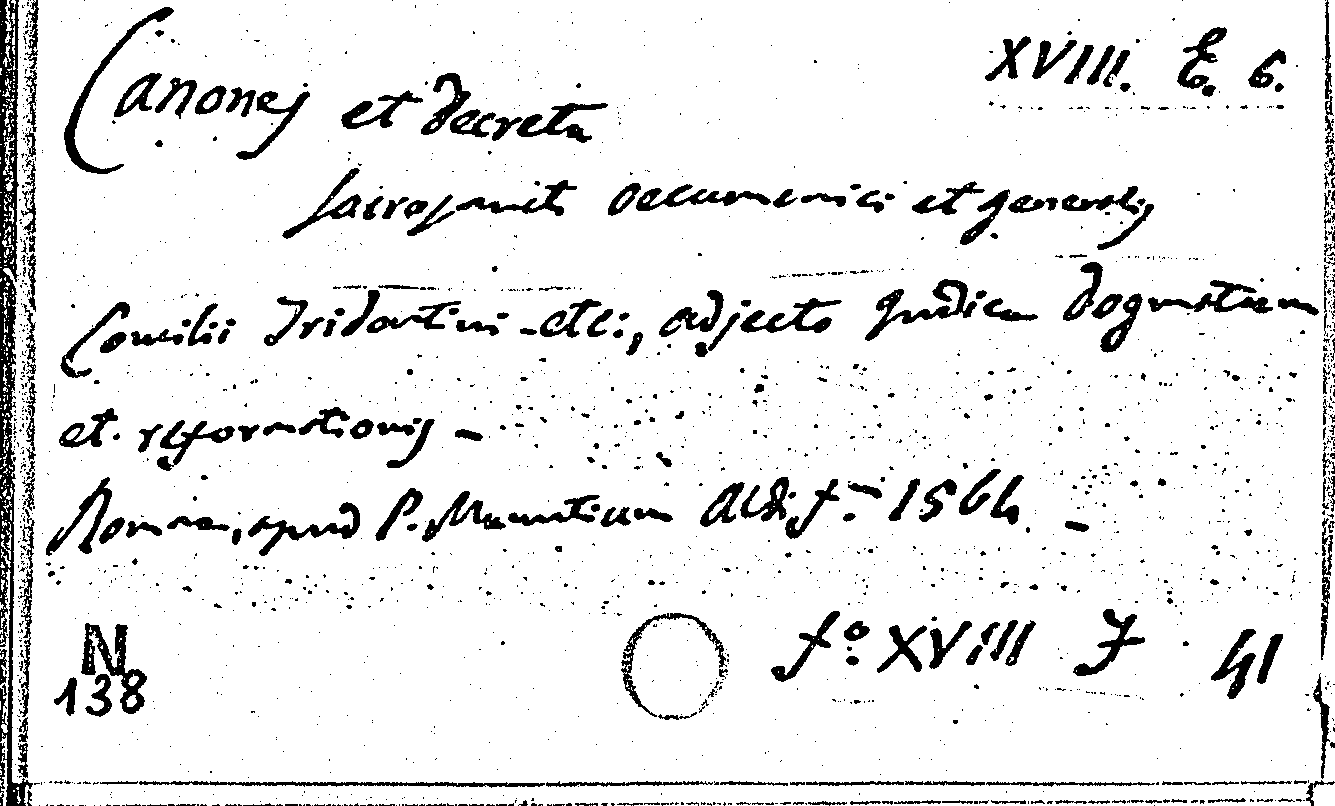 XVIII. E. 6.
Canones et decreta
sacrosancti oecumenici et generalis
Concilii Tridentini etc:, adjecto Indice dogmatum
et reformationis -
Romae, apud P. Manutium Aldi f. - 1564. -
N
138
f° XVIII J 41